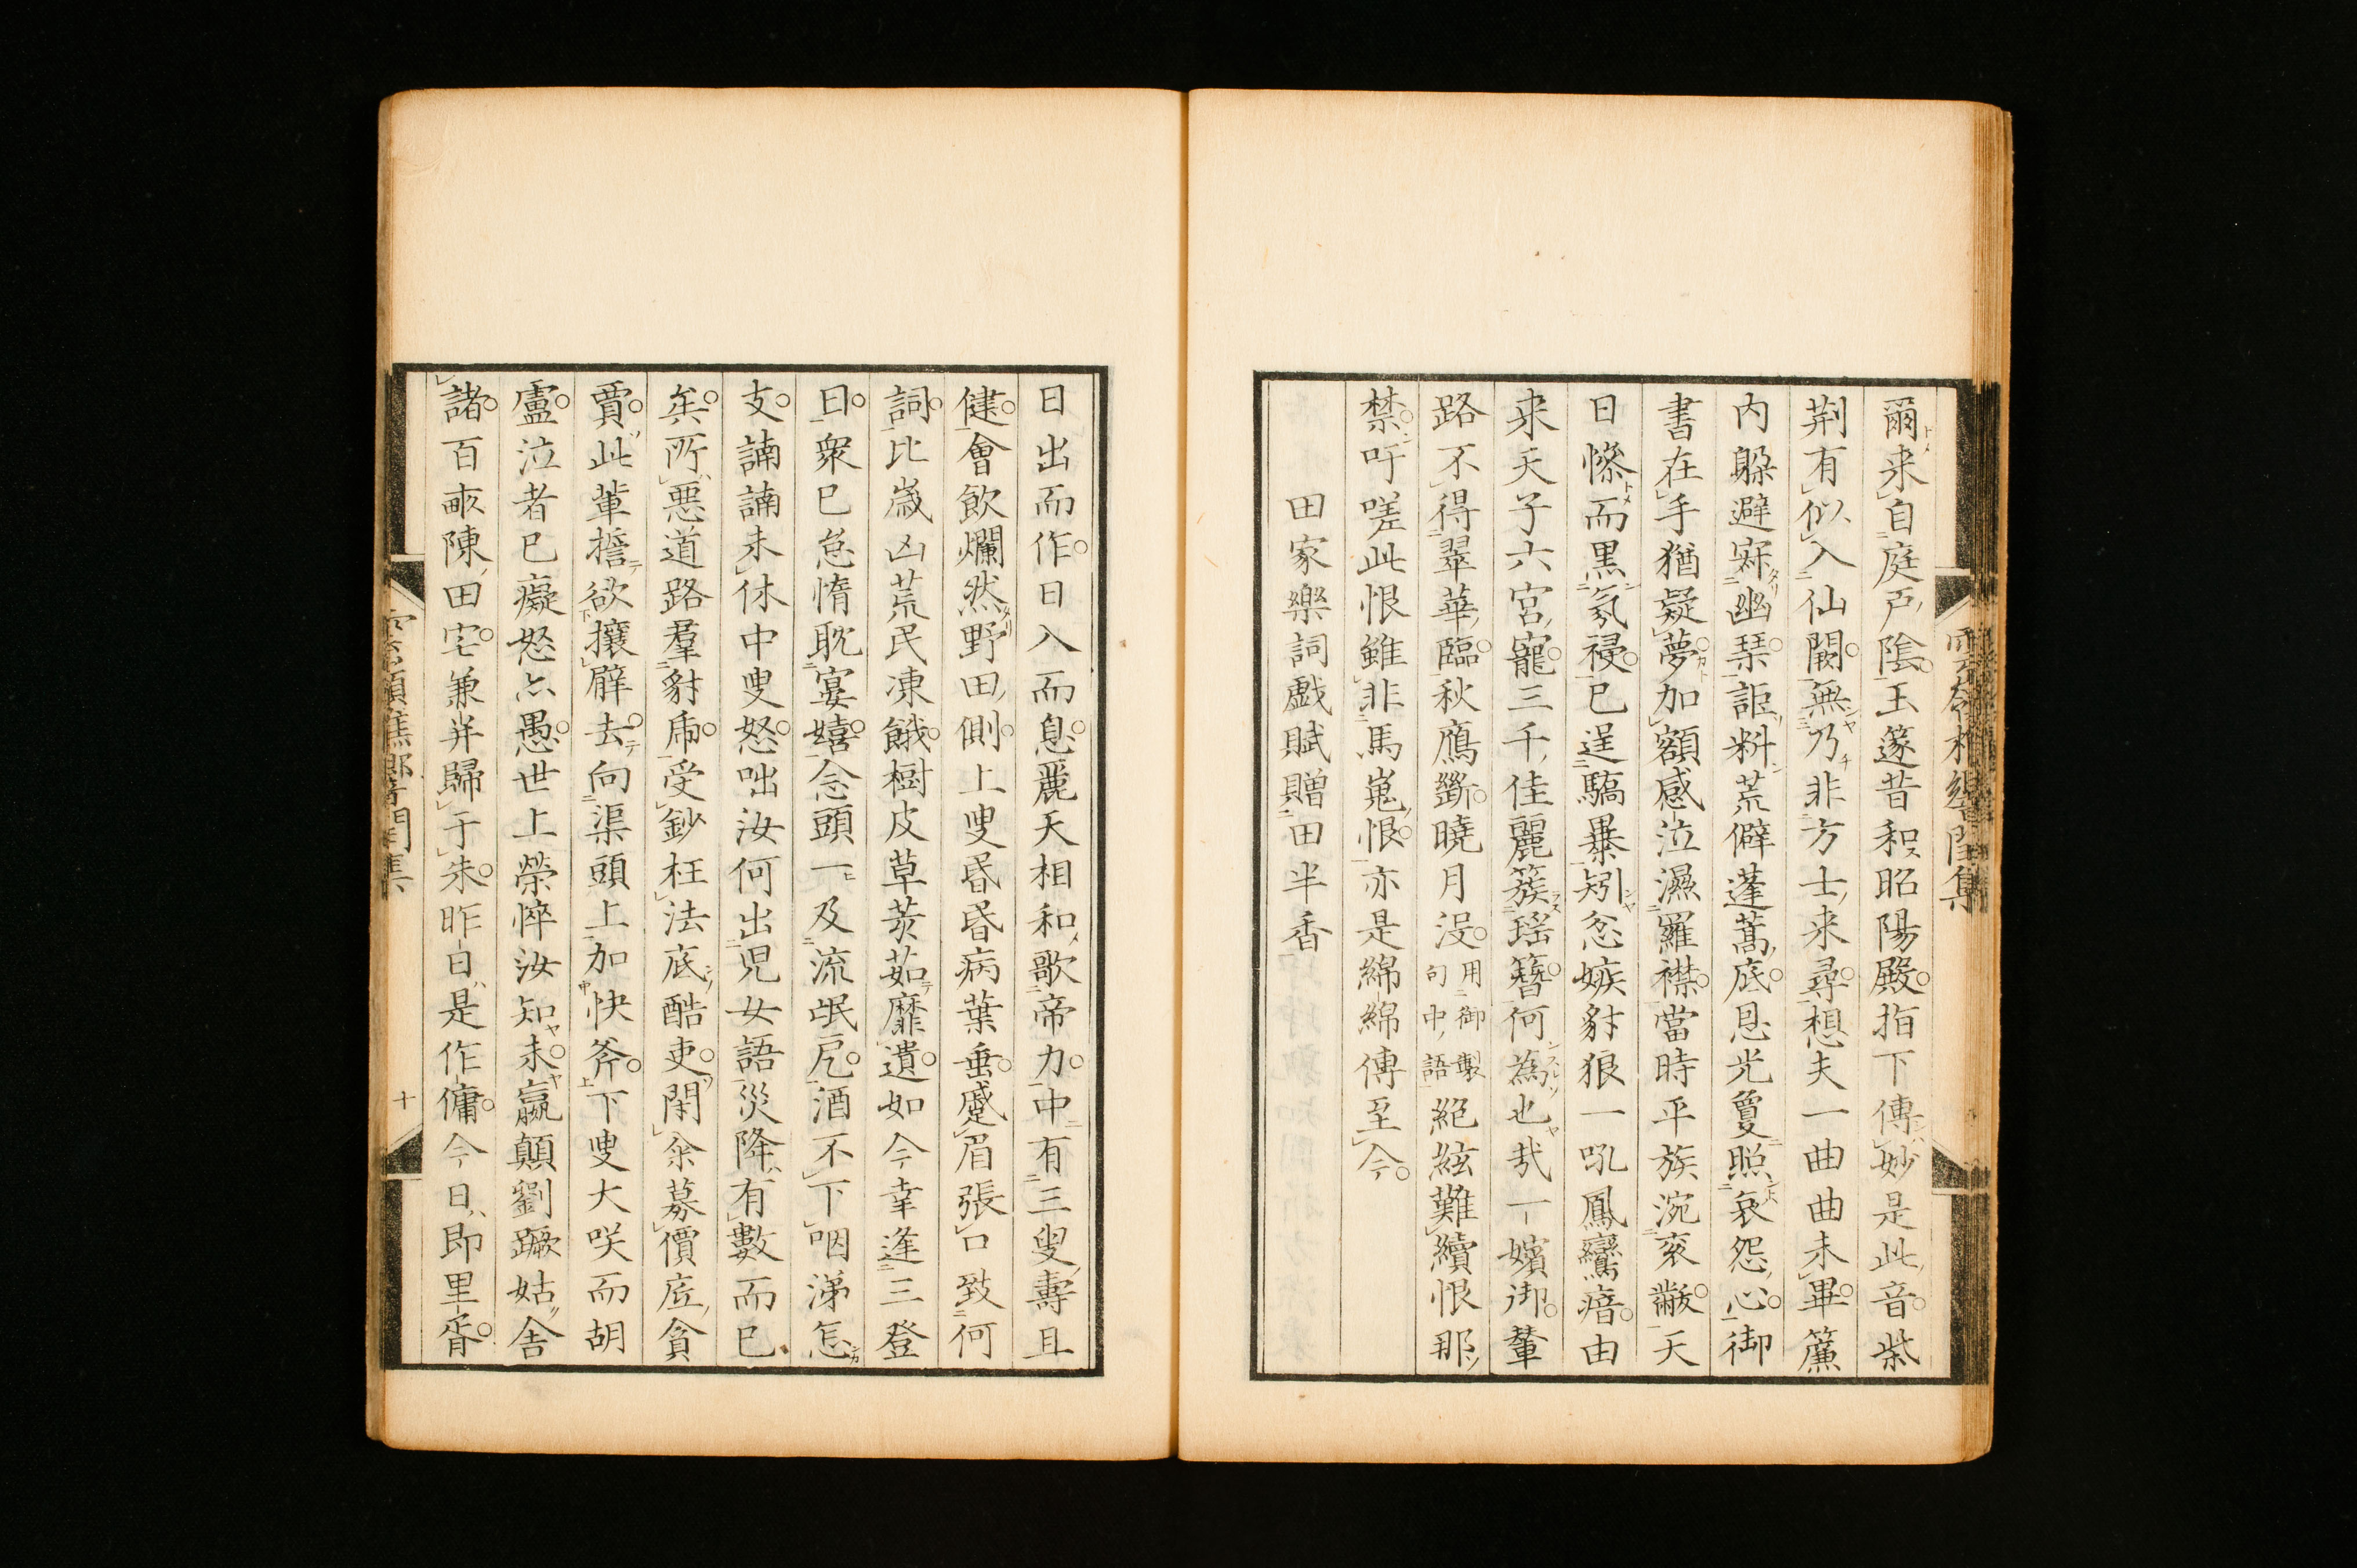 爾来自庭戸陰玉篴昔和昭陽殿指下傳妙是此音紫
荆有似入仙闕無乃非方士来尋想夫一曲曲未畢簾
内躱避寂幽琹詎料荒僻蓬蒿底恩光敻照哀怨心御
書在手猶疑夢加額感泣濕羅襟當時平族涴衮黻天
日慘而黒氛祲已逞驕暴矧忿嫉豺狼一吼鳳鸞瘖由
来天子六宮寵三千佳麗簇瑶簪何為也㢤一嬪御輦
路不得翠華臨秋鴈斷曉月没
用御製
句中語
絶絃難續恨那
禁吁嗟此恨雖非馬嵬恨亦是綿綿傳至今
田家樂詞戯賦贈田半香
日出而作日入而息麗天相和歌帝力中有三叟壽且
健會飲爛然野田側上叟昬昬病葉垂蹙眉張口致何
詞比歳凶荒民凍餓樹皮草茇茹靡遺如今幸逢三登
日衆已怠惰耽宴嬉念頭一及流氓戹酒不下咽涕怎
支諵諵未休中叟怒咄汝何出児女語災降有數而已
矣所惡道路羣豺虎受鈔枉法底酷吏閉糴募價底貪
賈此輩揸欲攘臂去向渠頭上加快斧下叟大咲而胡
盧泣者已癡怒亦愚世上榮悴汝知未嬴顛劉蹶姑舎
諸百畝陳田宅兼并歸于朱昨日是作傭今日即里胥
十